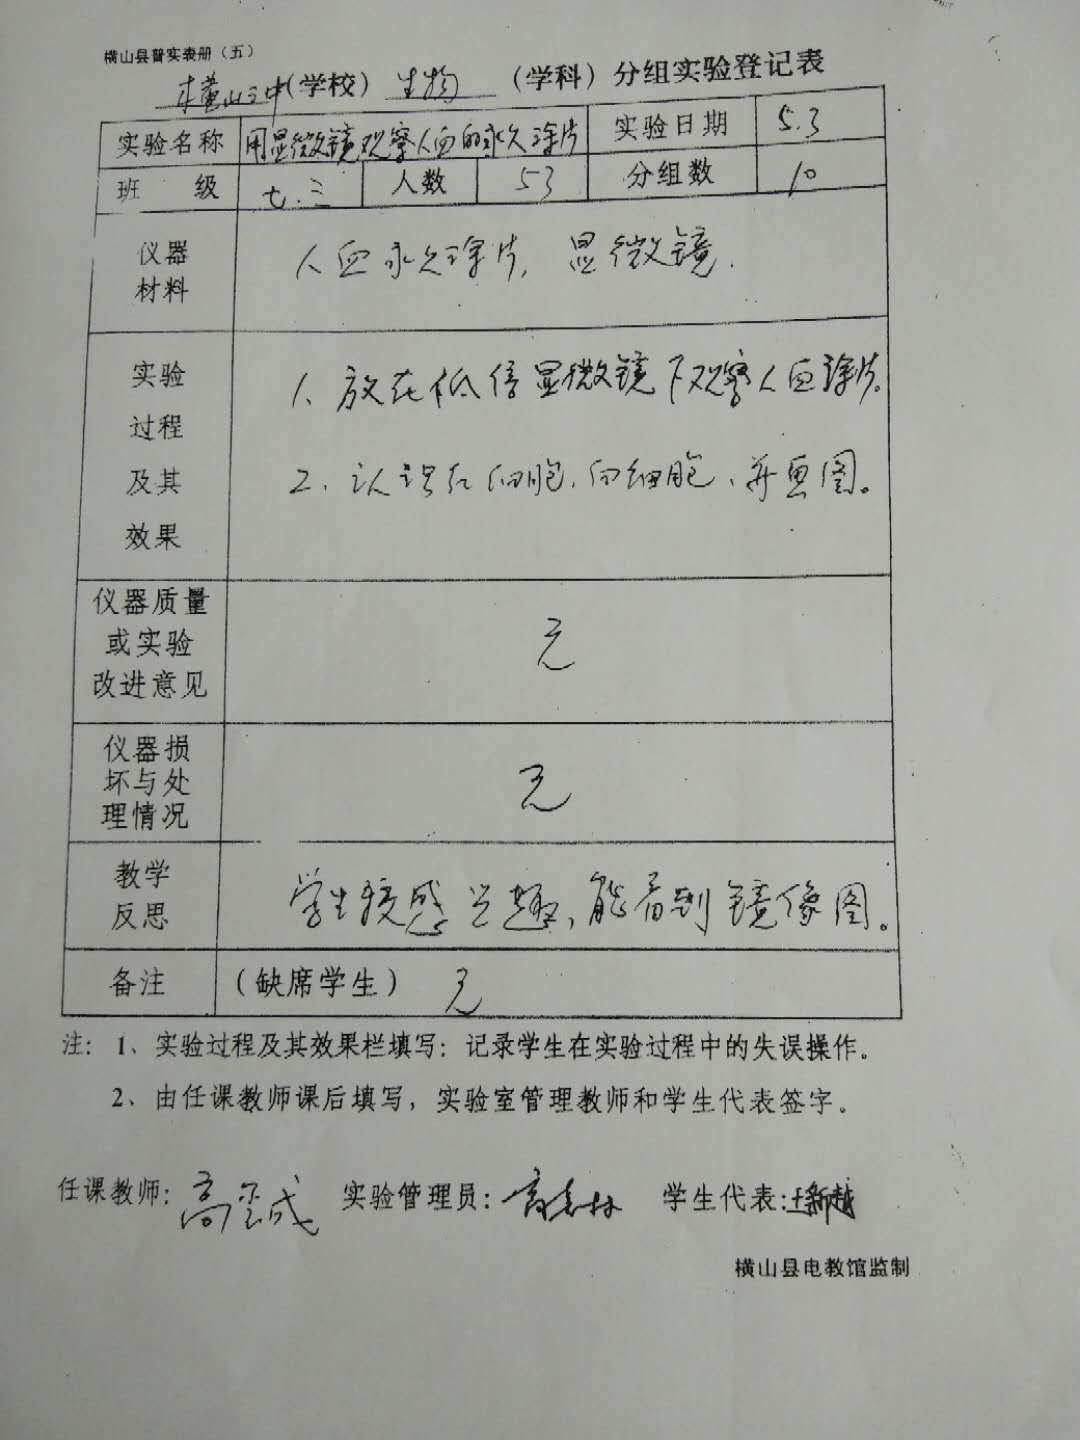 横山县普实表册（五）
横山三中（学校） 生物 （学科）分组实验登记表
实验名称 用显微镜观察人血的永久涂片 实验日期 5.3
班 级 七.三 人数 53 分组数 10
仪器
材料
人血永久涂片, 显微镜.
实验
过程
及其
效果
1、放在低倍显微镜下观察人血涂片。
2、认识红细胞、白细胞、并画图。
仪器质量
或实验
改进意见
无
仪器损
坏与处
理情况
无
教学
反思
学生很感兴趣,能看到镜像图。
备注 （缺席学生） 无
注：1、实验过程及其效果栏填写：记录学生在实验过程中的失误操作。
2、由任课教师课后填写，实验室管理教师和学生代表签字。
任课教师: 实验管理员: 学生代表:
横山县电教馆监制